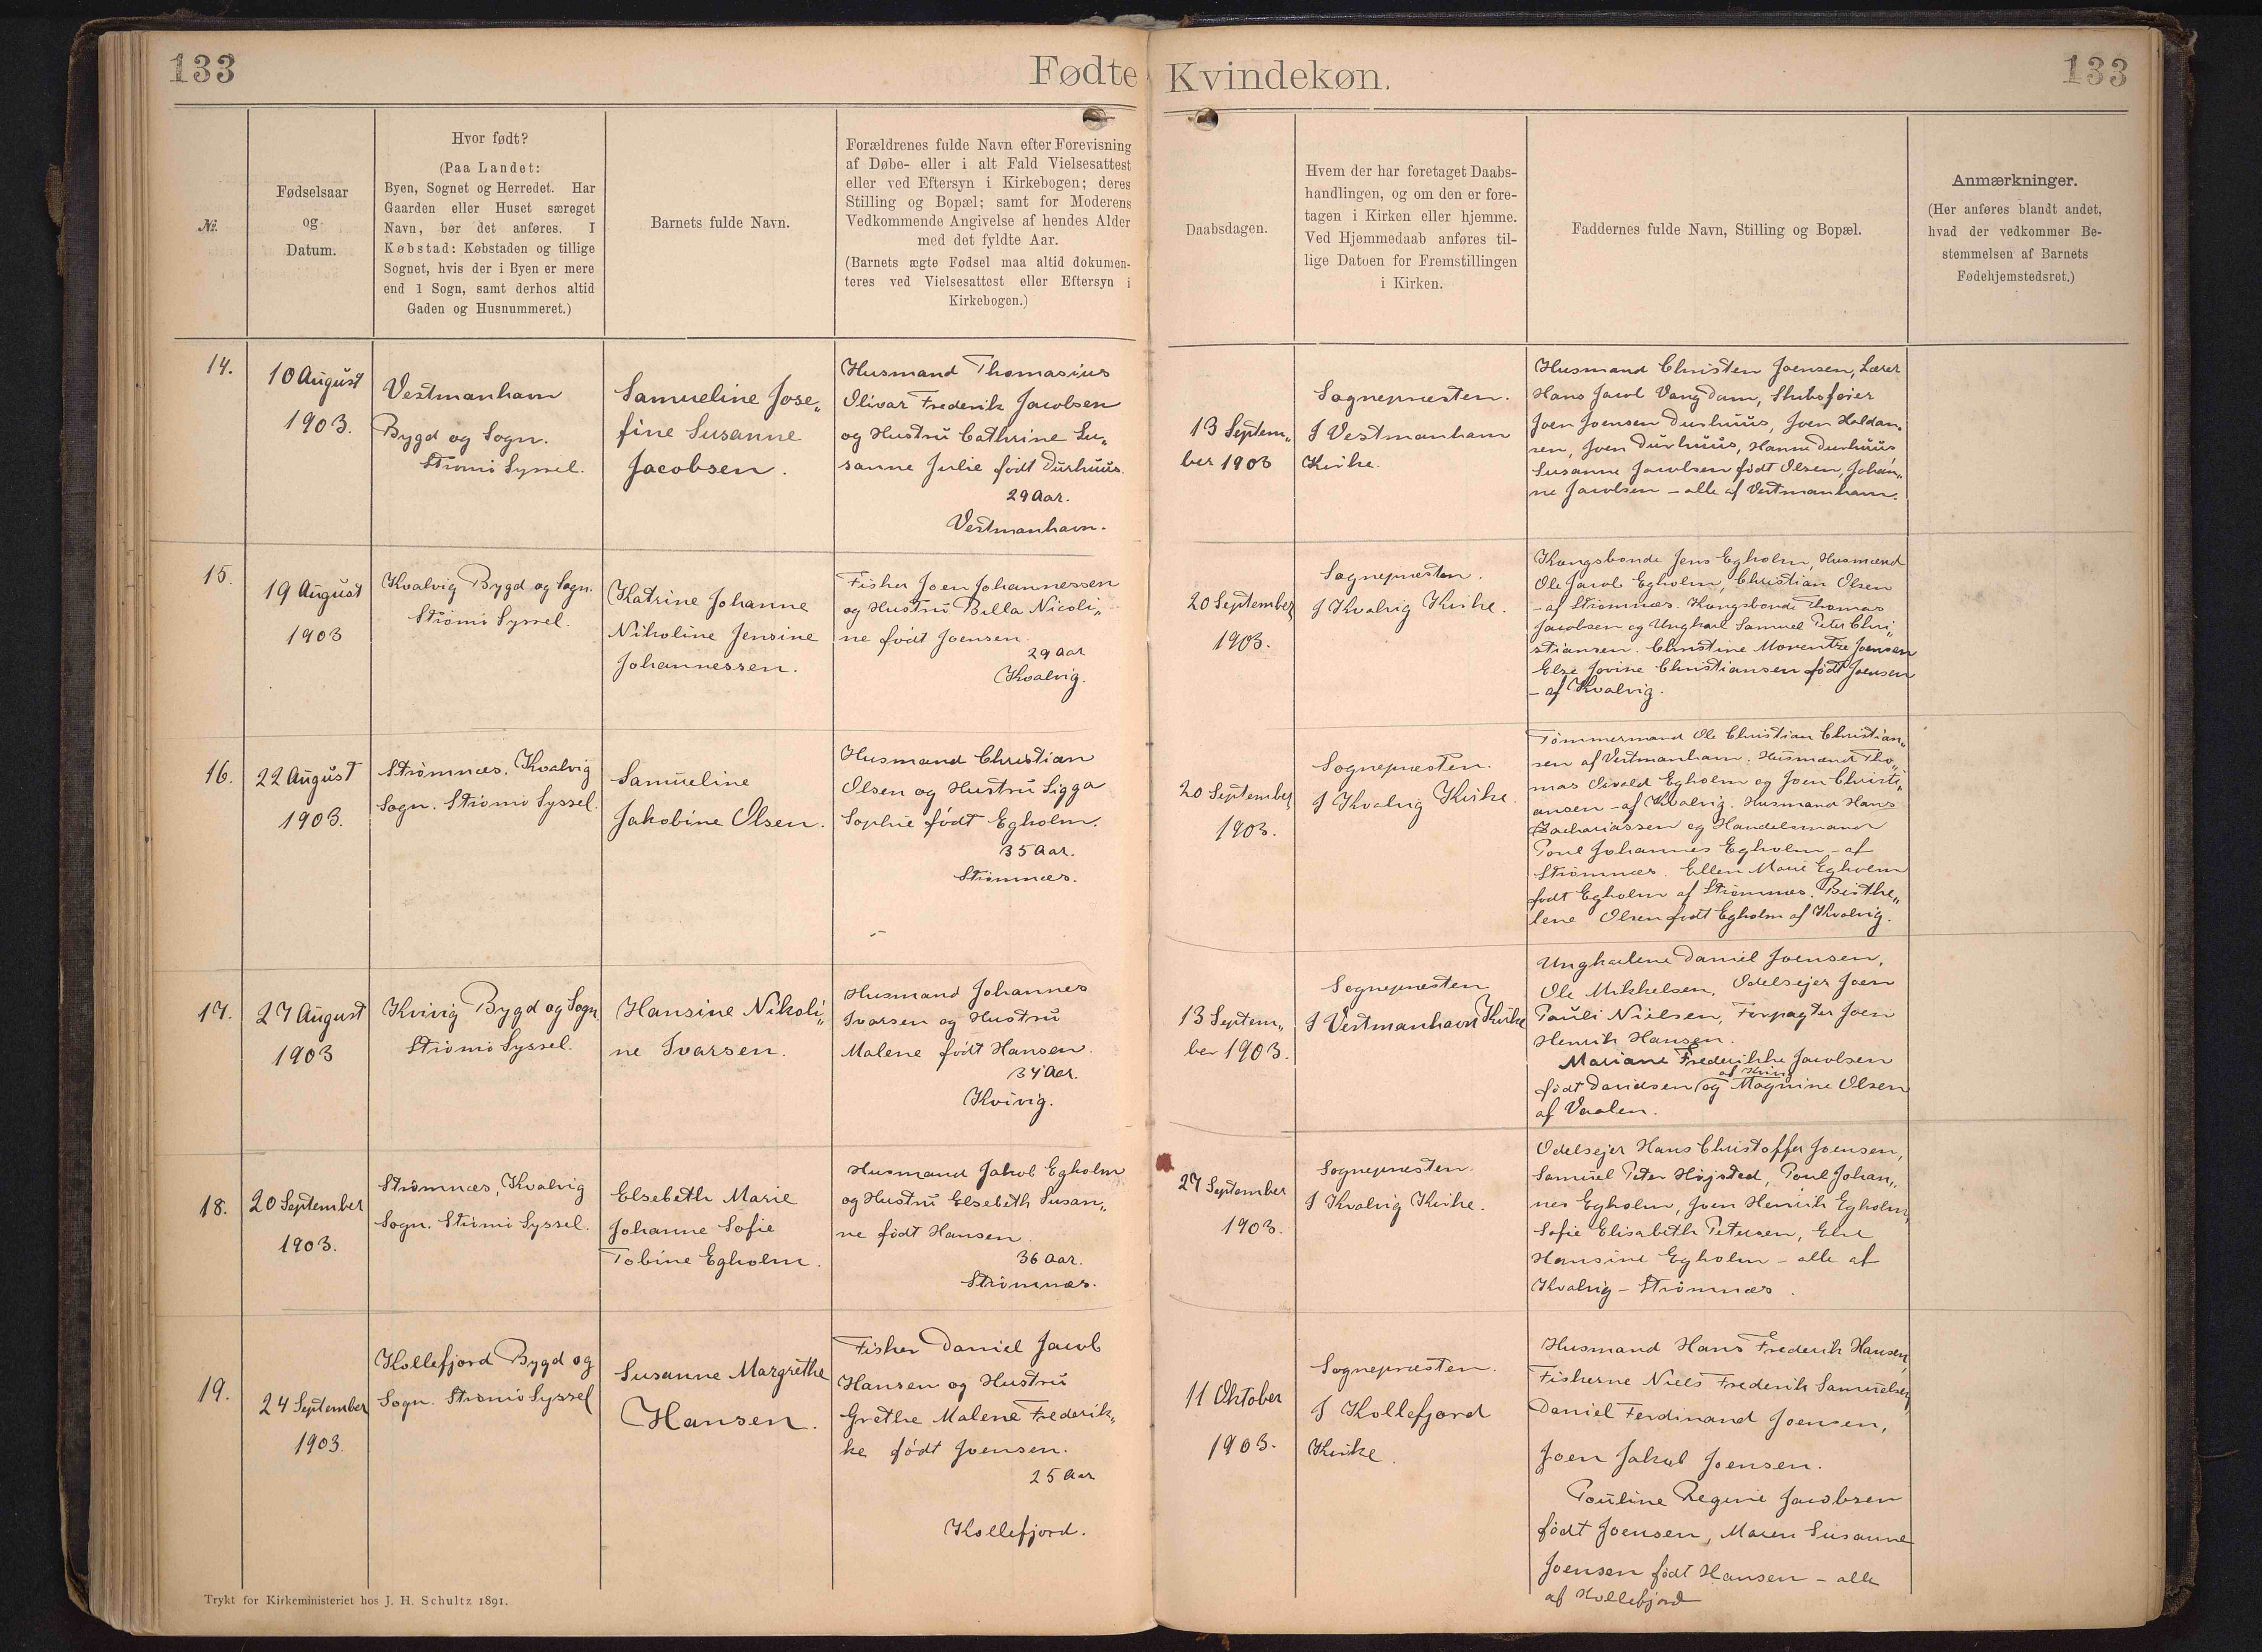 133
Fødte
Kvindekøn.
133
№.
Fødselsaar
og
Datum.
Hvor født?
(Paa Landet:
Byen, Sognet og Herredet. Har
Gaarden eller Huset særeget
Navn, bør det anføres. I
Købstad: Købstaden og tillige
Sognet, hvis der i Byen er mere
end 1 Sogn, samt derhos altid
Gaden og Husnummeret.)
Barnets fulde Navn.
Forældrenes fulde Navn efter Forevisning
af Døbe- eller i alt Fald Vielsesattest
eller ved Eftersyn i Kirkebogen; deres
Stilling og Bopæl; samt for Moderens
Vedkommende Angivelse af hendes Alder
med det fyldte Aar.
(Barnets ægte Fødsel maa altid dokumen-
teres ved Vielsesattest eller Eftersyn i
Kirkebogen.)
Daabsdagen.
Hvem der har foretaget Daabs-
handlingen, og om den er fore-
tagen i Kirken eller hjemme.
Ved Hjemmedaab anføres til-
lige Datoen for Fremstillingen
i Kirken.
Faddernes fulde Navn, Stilling og Bopæl.
Anmærkninger.
(Her anføres blandt andet,
hvad der vedkommer Be-
stemmelsen af Barnets
Fødehjemstedsret.)
14.
10 August
1903.
Vestmanhavn
Bygd og Sogn.
Strømø Syssel.
Samueline Jose„
fine Susanne
Jacobsen.
Husmand Thomasius
Olivar Frederik Jacobsen
og Hustru Cathrine Su„
sanne Julie født Durhuus.
29 Aar.
Vestmanhavn.
13 Septem„
ber 1903
Sognepræsten.
I Vestmanhavn
Kirke.
Husmand Christen Joensen, Lærer
Hans Jacob Vang Dam, Skibsfører
Joen Joensen Durhuus, Joen Haldan„
sen, Joen Durhuus, Hanne Durhuus
Susanne Jacobsen født Olsen, Johan„
ne Jacobsen – alle af Vestmanhavn.
15.
19 August
1903
Kvalvig Bygd og Sogn.
Strømø Syssel.
Katrine Johanne
Nikoline Jensine
Johannessen.
Fisker Joen Johannessen
og Hustru Billa Nicoli„
ne født Joensen.
29 Aar
Kvalvig.
20 September
1903.
Sognepræsten.
I Kvalvig Kirke.
Kongsbonde Jens Egholm, Husmænd
Ole Jacob Egholm, Christian Olsen
– af Strømnæs. Kongsbonde Thomas
Jacobsen og Ungkarl Samuel Peter Chri„
stiansen. Christine Morentze Joensen
Else Jovine Christiansen født Joensen
– af Kvalvig.
16.
22 August
1903.
Strømnæs, Kvalvig
Sogn. Strømø Syssel.
Samueline
Jakobine Olsen.
Husmand Christian
Olsen og Hustru Sigga
Sophie født Egholm.
35 Aar.
Strømnæs.
20 September
1903.
Sognepræsten.
I Kvalvig Kirke.
Tømmermand Ole Christian Christian„
sen af Vestmanhavn. Husmænd Tho„
mas Sivald Egholm og Joen Christi„
ansen – af Kvalvig. Husmand Hans
Zachariassen og Handelsmand
Poul Johannes Egholm – af
Strømnæs. Ellen Marie Egholm
født Egholm af Strømnæs. Birthe„
lene Olsen født Egholm af Kvalvig.
17.
27 August
1903
Kvivig Bygd og Sogn
Strømø Syssel.
Hansine Nikoli„
ne Ivarsen.
Husmand Johannes
Ivarsen og Hustru
Malene født Hansen.
34 Aar.
Kvivig.
13 Septem„
ber 1903.
Sognepræsten
I Vestmanhavn Kirke
Ungkarlene Daniel Joensen,
Ole Mikkelsen, Odelsejer Joen
Pauli Nielsen, Forpagter Joen
Henrik Hansen.
Mariane Frederikke Jacobsen
født Davidsen af Kvivig og Magnine Olsen
af Vaalen.
18.
20 September
1903.
Strømnæs, Kvalvig
Sogn. Strømø Syssel.
Elsebeth Marie
Johanne Sofie
Tobine Egholm.
Husmand Jakob Egholm
og Hustru Elsebeth Susan„
ne født Hansen.
36 Aar.
Strømnæs.
27 September
1903.
Sognepræsten.
I Kvalvig Kirke.
Odelsejer Hans Christoffer Joensen,
Samuel Peter Højsted, Poul Johan„
nes Egholm, Joen Henrik Egholm,
Sofie Elisabeth Petersen, Else
Hansine Egholm – alle af
Kvalvig – Strømnæs.
19.
24 September
1903.
Kollefjord Bygd og
Sogn. Strømø Syssel
Susanne Margrethe
Hansen.
Fisker Daniel Jacob
Hansen og Hustru
Grethe Malene Frederik„
ke født Joensen.
25 Aar
Kollefjord.
11 Oktober
1903.
Sognepræsten.
I Kollefjord
Kirke.
Husmand Hans Frederik Hansen,
Fiskerne Niels Frederik Samuelsen,
Daniel Ferdinand Joensen,
Joen Jakob Joensen.
Pouline Regine Jacobsen
født Joensen, Maren Susanne
Joensen født Hansen – alle
af Kollefjord
Trykt for Kirkeministeriet hos J. H. Schultz 1891.